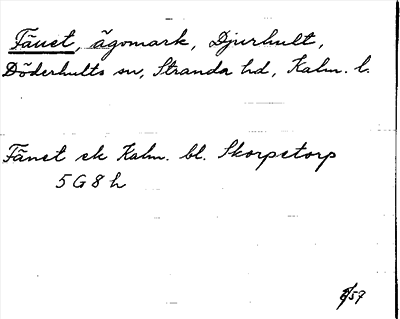 Fänet, ägomark, Djurhult,
Döderhults sn, Stranda hd, Kalm. l.
Fänet ek Kalm. bl. Skorpetorp
5G8h